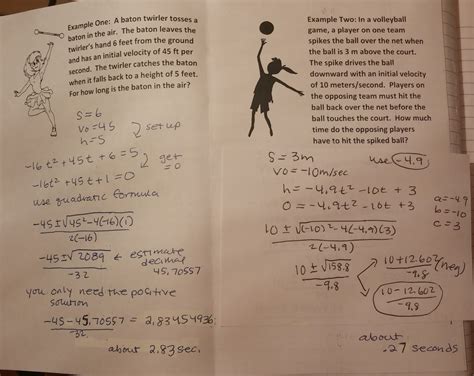 Example One: A baton twirler tosses a
baton in the air. The baton leaves the
twirler's hand 6 feet from the ground
and has an initial velocity of 45 ft per
second. The twirler catches the baton
when it falls back to a height of 5 feet.
For how long is the baton in the air?
S = 6
vo = 45
h = 5
set up
-16t² + 45t + 6 = 5
get = 0
-16t² + 45t + 1 = 0
use quadratic formula
-45 ± √45² - 4(-16)(1)
2(-16)
-45 ± √2089 ← estimate decimal
-32
45,70557
you only need the positive
solution
-45 - 45.70557 = 2.83454936
-32
about 2.83 sec.
Example Two: In a volleyball
game, a player on one team
spikes the ball over the net when
the ball is 3 m above the court.
The spike drives the ball
downward with an initial velocity
of 10 meters/second. Players on
the opposing team must hit the
ball back over the net before the
ball touches the court. How much
time do the opposing players
have to hit the spiked ball?
S = 3m
use -4.9
vo = -10m/sec
h = -4.9t² - 10t + 3
0 = -4.9t² - 10t + 3
a = -4.9
b = -10
c = 3
10 ± √(-10)² - 4(-4.9)(3)
2(-4.9)
10 ± √158.8
-9.8
10 + 12.602 (neg)
-9.8
10 - 12.602
-9.8
about
.27 seconds